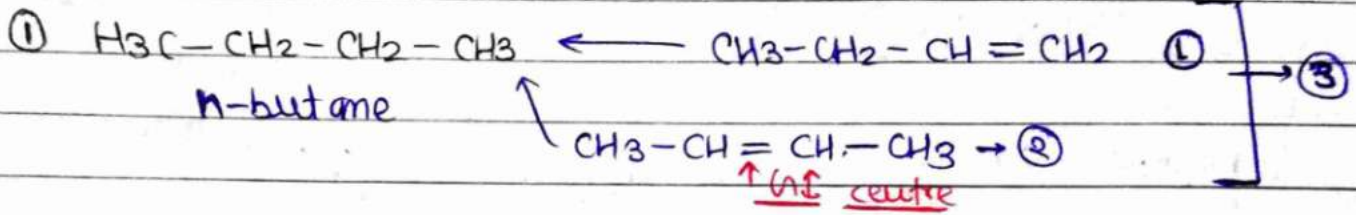 ① H3C-CH2-CH2-CH3 ← CH3-CH2-CH=CH2 ① → ③
n-butane
CH3-CH=CH-CH3 → ②
↑ GI centre